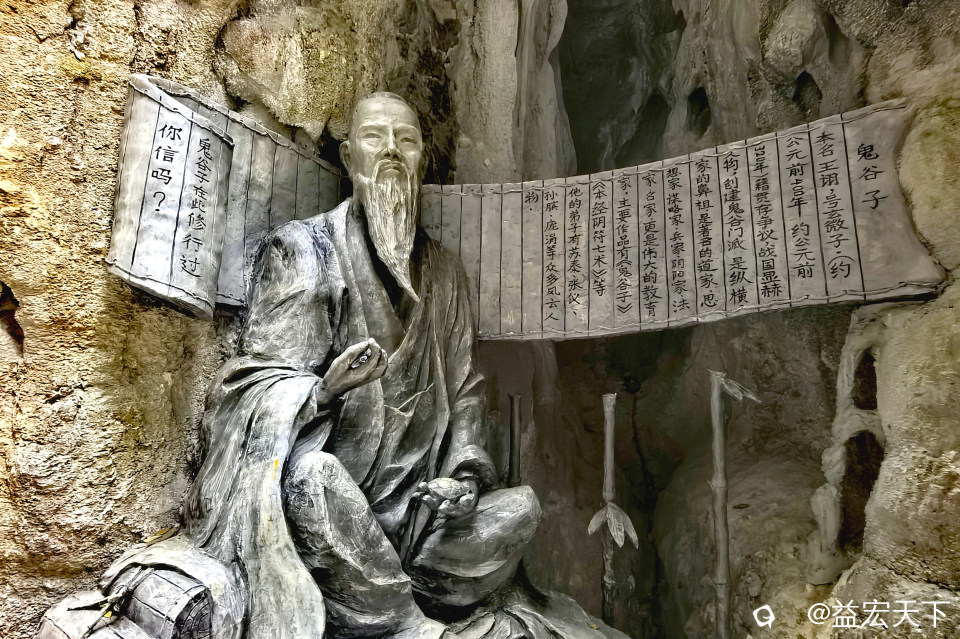 鬼谷子
本名王诩,号玄微子.(约
公元前400年 约公元前
320年.籍贯存争议.战国显赫
构,创建鬼谷门派.是纵横
家的鼻祖.是著名的道家.思
想家.谋略家.兵家.阴阳家.法
家.名家.更是伟大的教育
家.主要作品有《鬼谷子》
《本经阴符七术》等
他的弟子有苏秦.张仪.
孙膑.庞涓等众多风云人
物.
鬼谷子在此修行过
你信吗?
@益宏天下